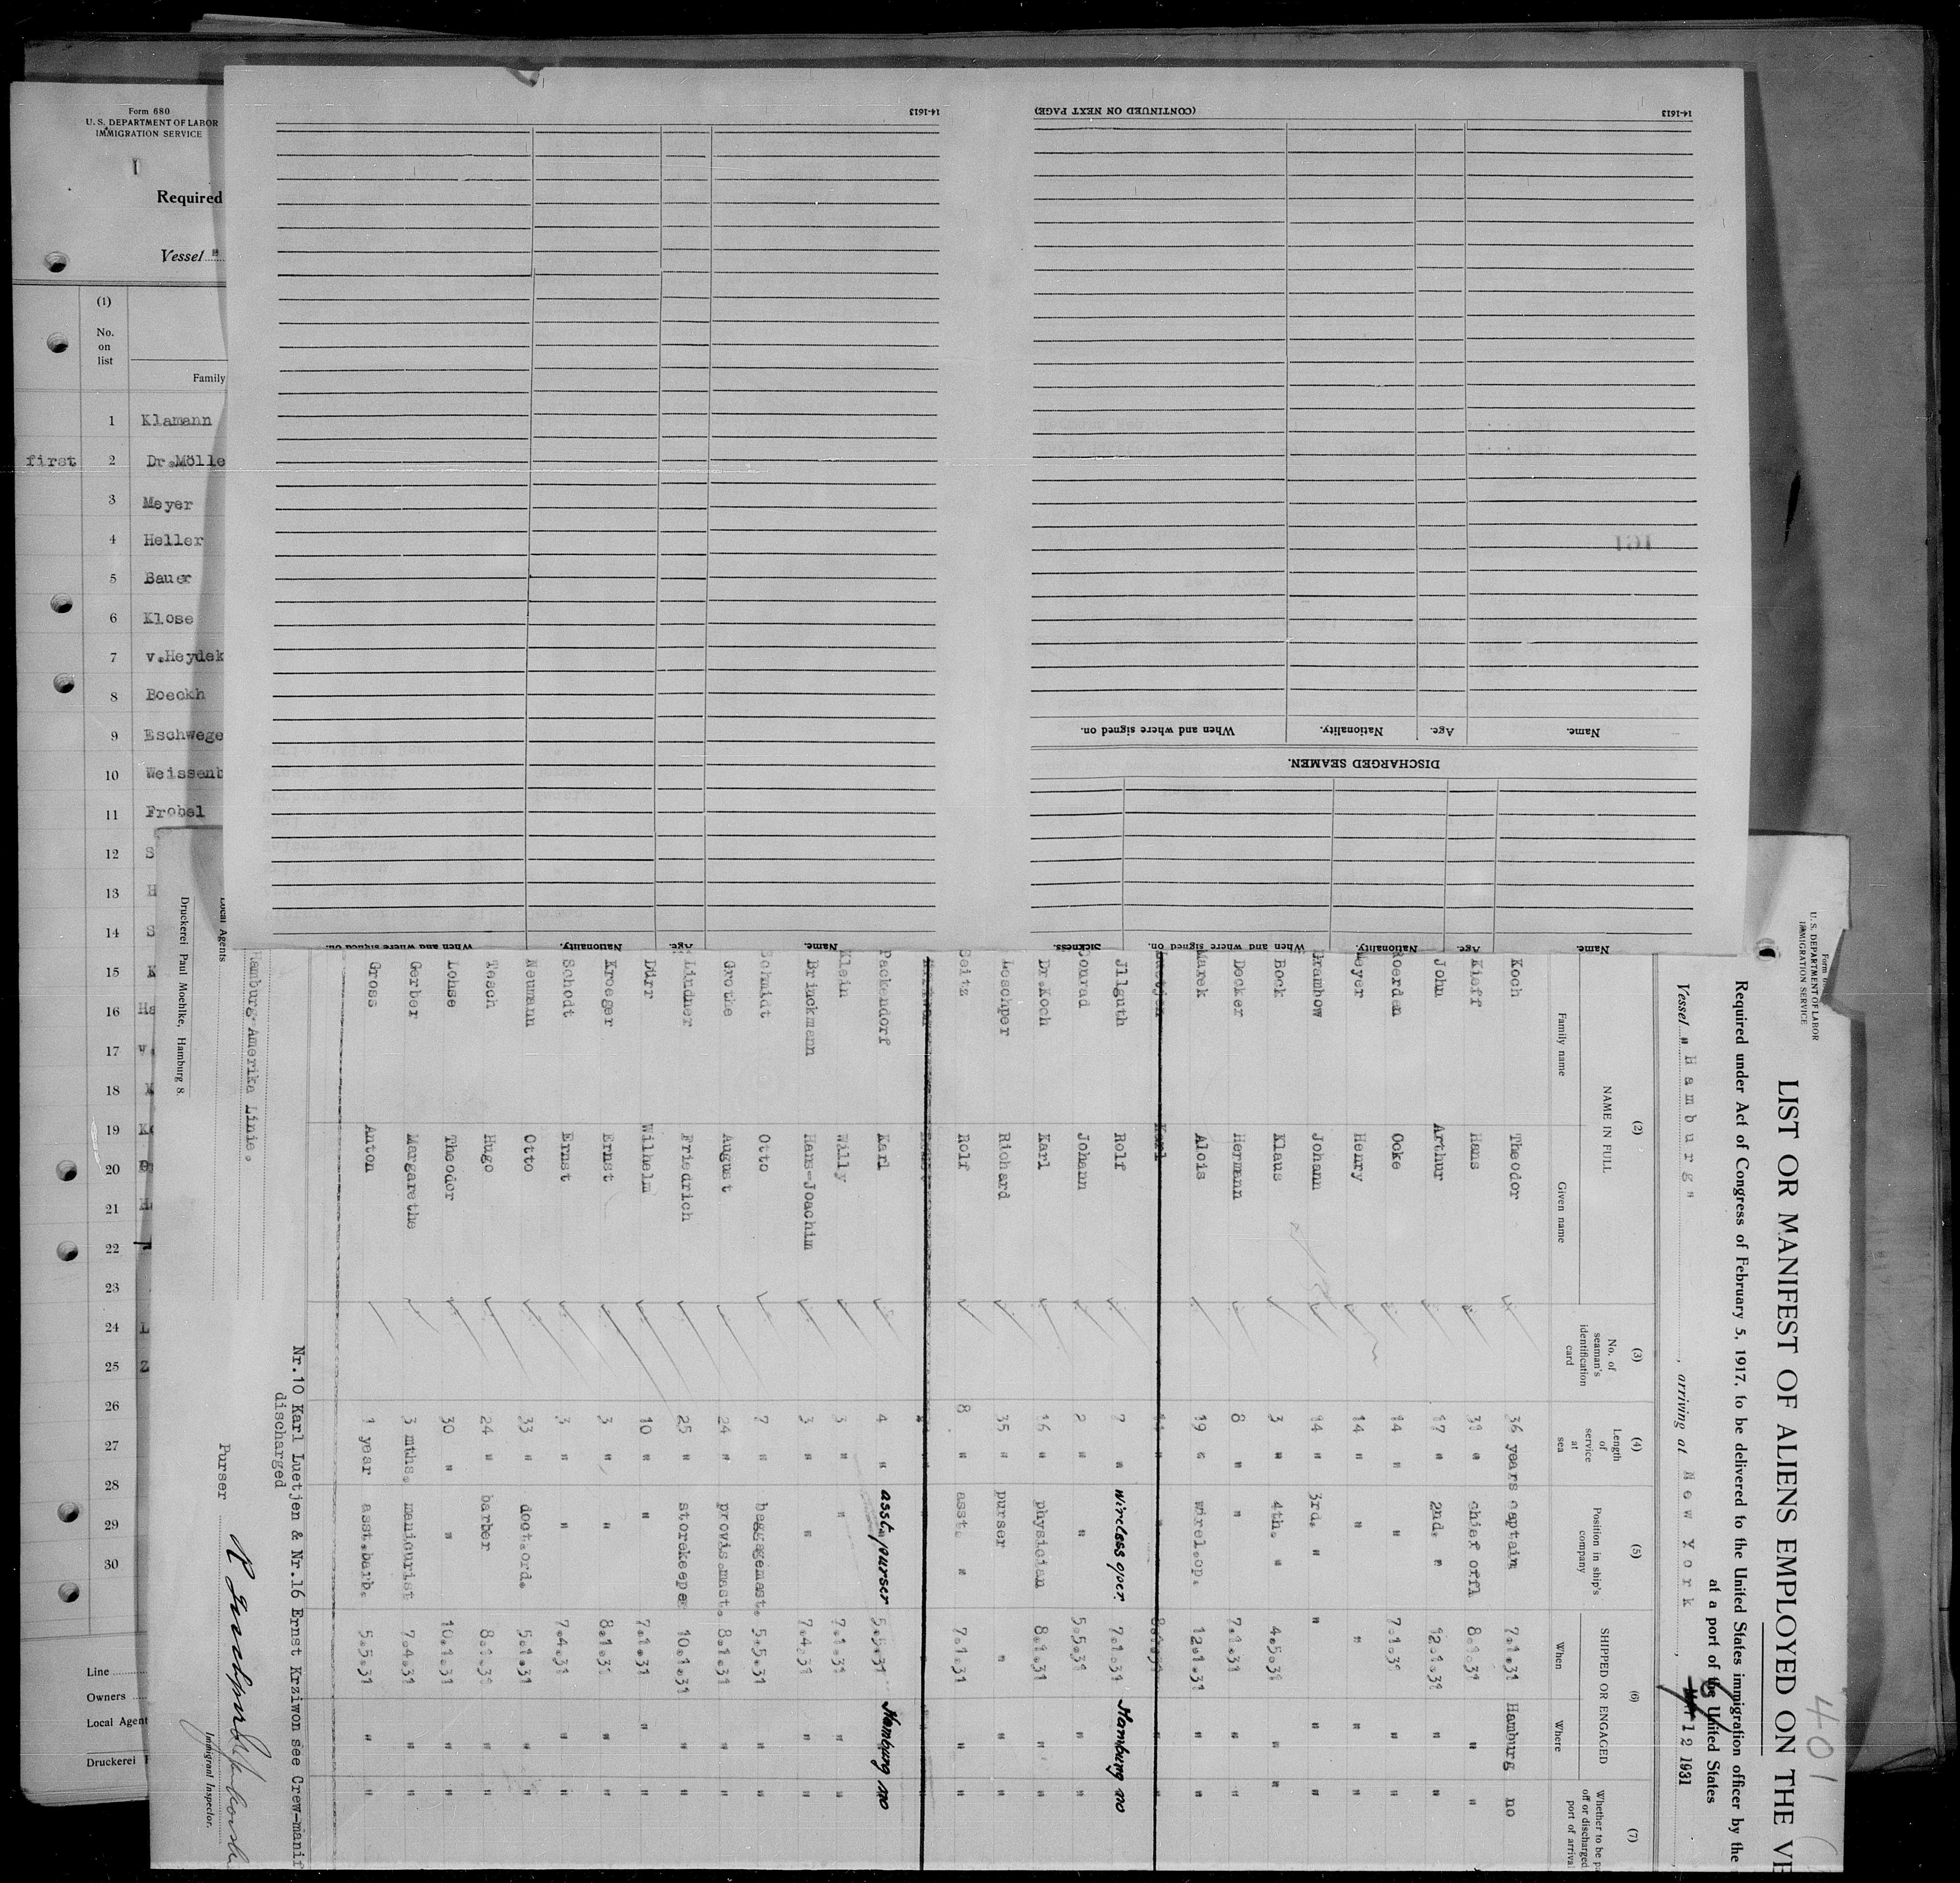 Form 680
U. S. DEPARTMENT OF LABOR
IMMIGRATION SERVICE
Required
Vessel "
(1)
No.
on
list
Family
1 Klamann
first 2 Dr.Mölle
3 Meyer
4 Heller
5 Bauer
6 Klose
7 v.Heydek
8 Boeckh
9 Eschwege
10 Weissenb
11 Frobel
12 S
13 H
14 S
15
16 He
17
18
19
20
21
22
23
24 L
25 Z
26
27
28
29
30
Line
Owners
Local Agent
Druckerei P
14-1613
(CONTINUED ON NEXT PAGE)
14-1613
When and where signed on. Nationality. Age. Name.
DISCHARGED SEAMEN.
Name. Age. Nationality. When and where signed on. Sickness.
Name. Age. Nationality. When and where signed on.
161
401
U. S. DEPARTMENT OF LABOR
IMMIGRATION SERVICE
LIST OR MANIFEST OF ALIENS EMPLOYED ON THE VE
Required under Act of Congress of February 5, 1917, to be delivered to the United States immigration officer by the
at a port of the United States
Vessel "Hamburg", arriving at New York, 12 1931
(2) (3) (4) (5) (6) (7)
NAME IN FULL
Family name Given name
No. of seaman's identification card
Length of service at sea
Position in ship's company
SHIPPED OR ENGAGED
When Where
Whether to be pa
off or discharged
port of arrival
Koch Theodor 36 years captain 7.1.31 Hamburg no
Kieff Hans 31 " chief offi 8.1.31 " "
John Arthur 17 " 2nd. " 12.1.31 " "
Roerden Ocke 14 " " 7.1.31 " "
Meyer Henry 14 " " " " "
Brambow Johann 14 " 3rd. " " " "
Bock Klaus 3 " 4th. " 4.5.31 " "
Decker Hermann 8 " " 7.1.31 " "
Marek Alois 19 " wirel.op. 12.1.31 " "
Luetjen Karl 11 " " 8.1.31 " "
Jllguth Rolf 7 " wireless oper. 7.1.31 Hamburg no
Conrad Johann 2 " " 5.5.31 " "
Dr.Koch Karl 16 " physician 8.1.31 " "
Leschper Richard 35 " purser " " "
Seitz Rolf 8 " asst. " 7.1.31 " "
Packendorf Karl 4 " asst. purser 5.5.31 Hamburg no
Klein Willy 3 " " 7.1.31 " "
Brinckmann Hans-Joachim 3 " " 7.4.31 " "
Schmidt Otto 7 " baggagemast. 5.5.31 " "
Grothe August 24 " provis.mast. 8.1.31 " "
Lindner Friedrich 25 " storekeeper 10.1.31 " "
Dürr Wilhelm 10 " " 7.1.31 " "
Kroeger Ernst 3 " " 8.1.31 " "
Schodt Ernst 3 " " 7.4.31 " "
Neumann Otto 33 " doct.ord. 5.1.31 "
Tesch Hugo 24 " barber 8.1.31 " "
Lohse Theodor 30 " " 10.1.31 " "
Gerber Margarethe 3 mths. manicurist 7.4.31 " "
Gross Anton 1 year asst.barb. 5.5.31 " "
Nr.10 Karl Luetjen & Nr.16 Ernst Krziwon see Crew-manif
discharged
Hamburg-Amerika Linie.
Purser
Local Agents
Immigrant Inspector.
Druckerei Paul Moehlke, Hamburg 8.